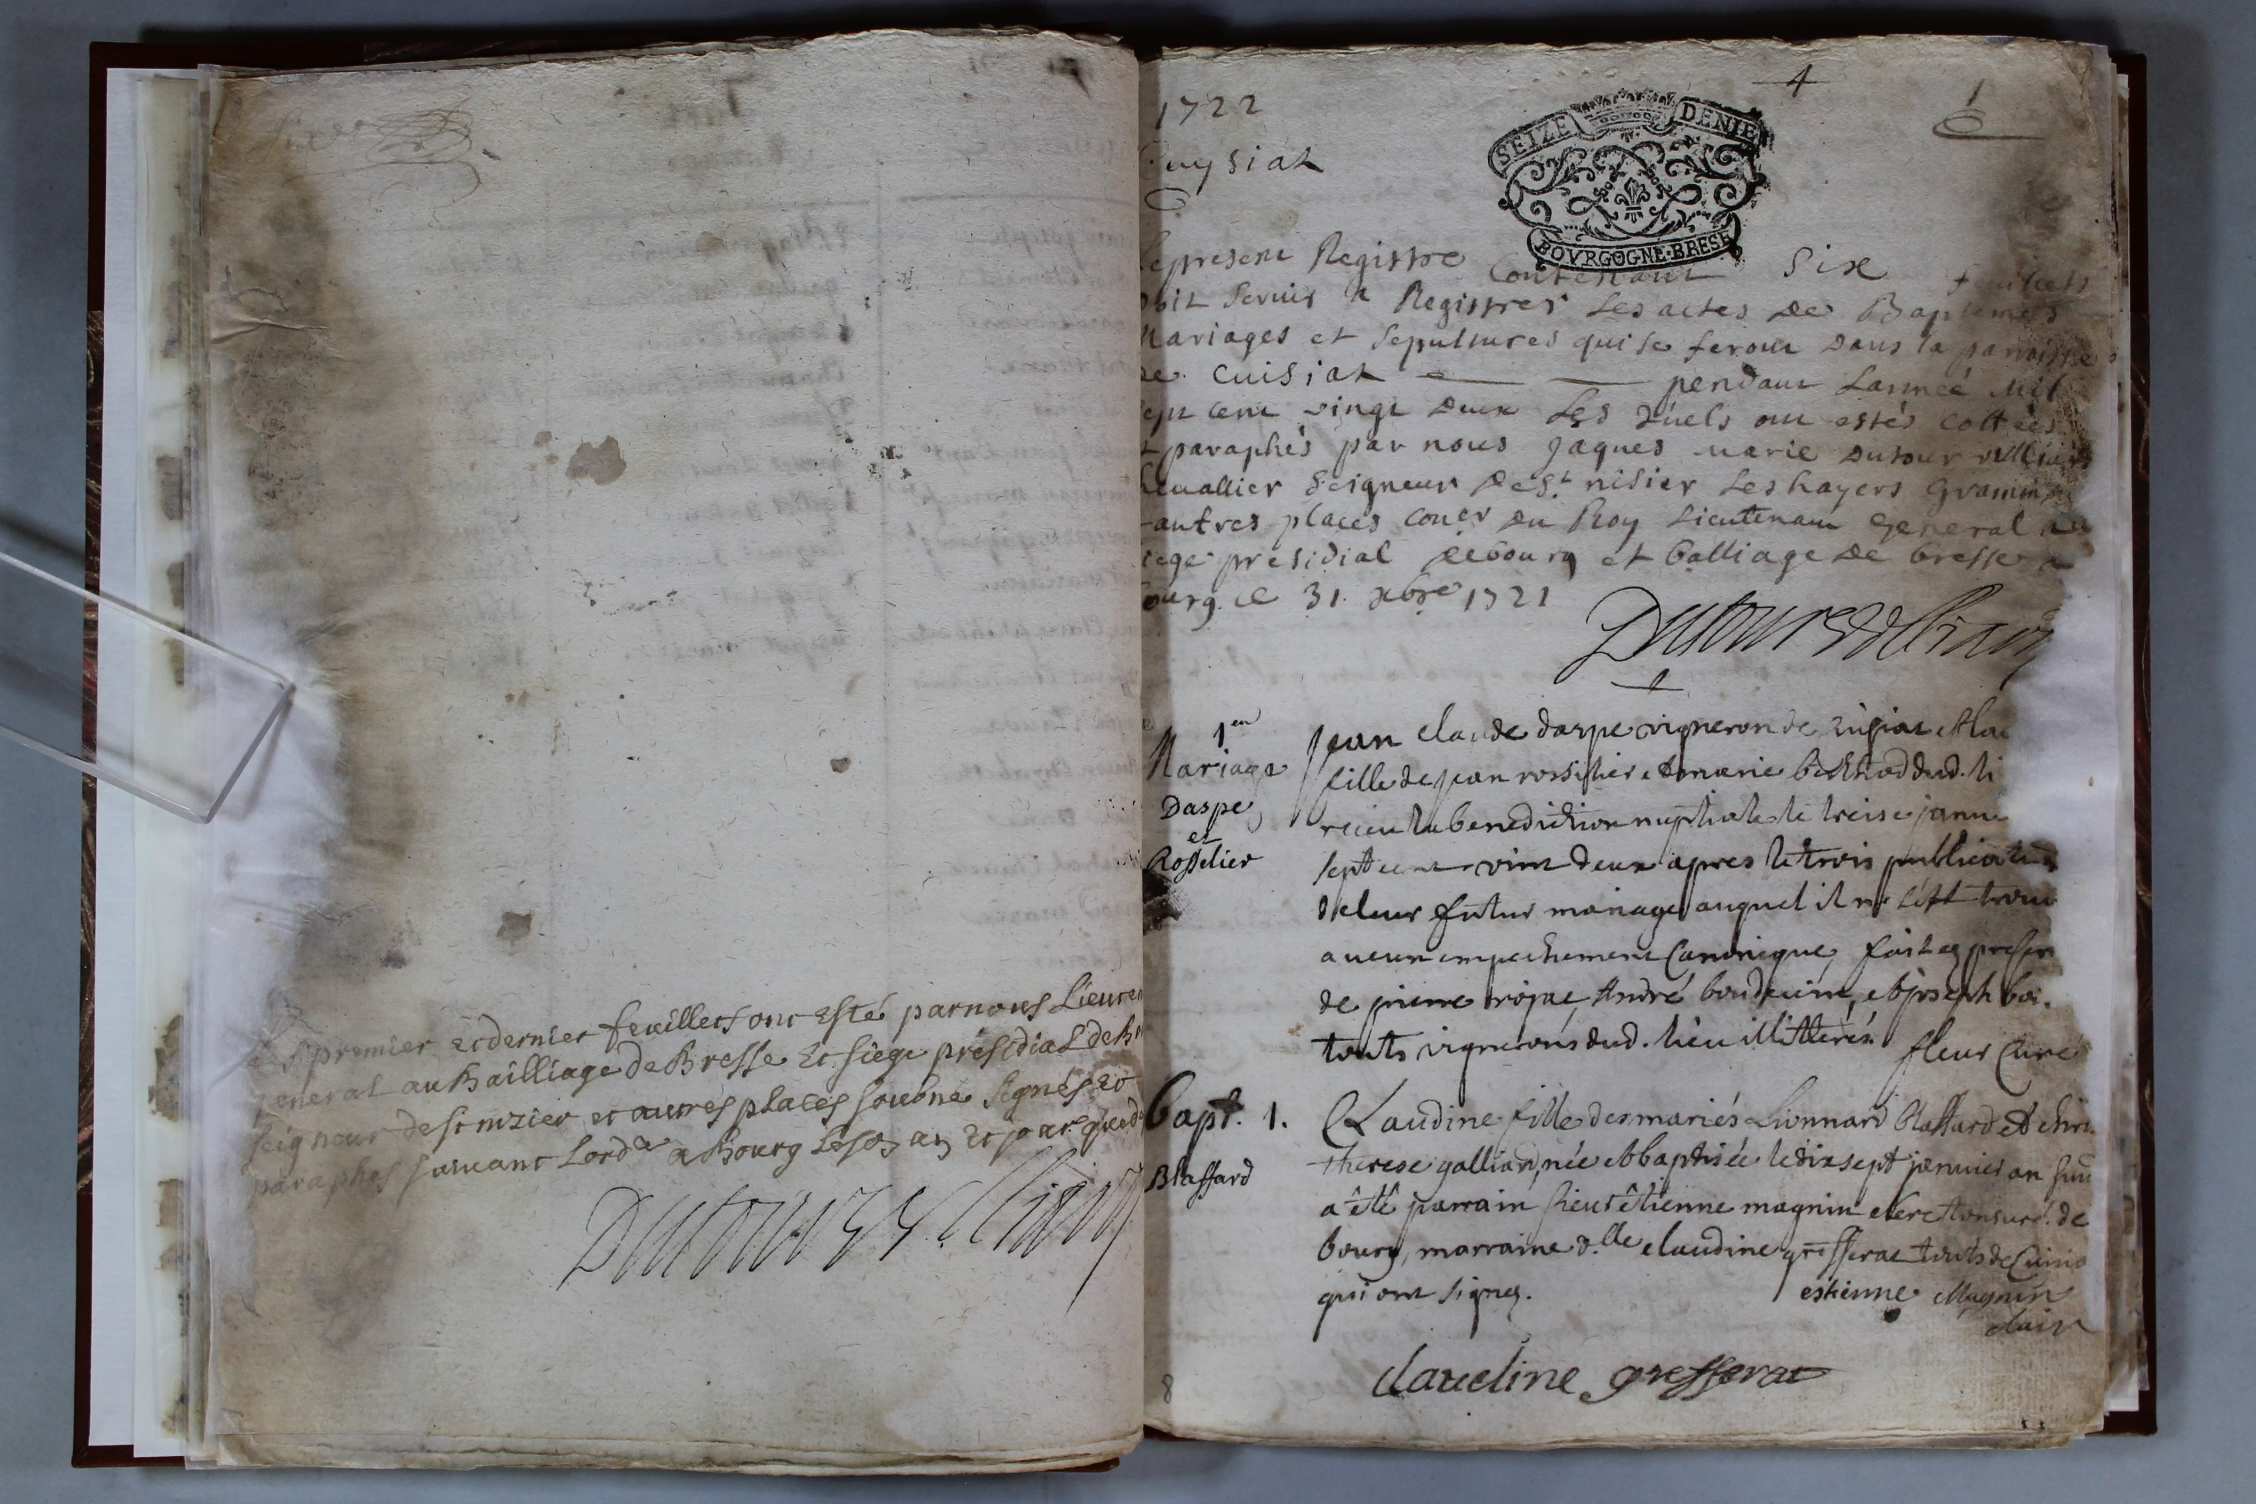 premier et dernier feuillets ont esté par nous Lieuten
general au Bailliage de Bresse et siege presidial de
seigneur de st nizier et autres places soubné signés et
paraphés suivant Lord.ce a Bourg
Dutour
4
1
1722
uysiat
SEIZE DENIE
BOVRGOGNE·BRESE
Lepresent Registre Contenant Six feuillets
doit servir a Registrer Les actes de Baptemes
Mariages et sepultures qui se feront dans la paroisse
de Cuisiat pendant Lannée Mil
sept cent vingt deux Les quels ont estés cottées
et paraphés par nous Jaques marie dutour
chevallier seigneur de st nisier Les hayers
autres places coner du Roy Lieutenant General au
siege presidial de bourg et balliage de bresse a
bourg ce 31. xbre 1721
Dutour
1er
Mariage
Daspe
et
Rosselier
Jean claude daspe vigneron de
fille de jean rosselier et marie dud. li
receu la benediction nuptiale le treise janvi
sept cent vint deux apres le trois publication
de leur futur mariage auquel il ne s'est trouv
aucun empechement Canonique, fait en presen
de pierre André et joseph
touts vignerons dud. lieu illitterés fleur Curé
Bapt. 1.
Blaffard
Claudine fille des mariés Lionnard Blaffard et
therese galliard, née et baptisée le dixsept janvier an
a êtê parrain sieur êtienne magnin clerc tonsuré de
bourg, marraine d.lle claudine gresserat touts de
qui ont signez. estienne Magnin
clair
claudine gresserat
8